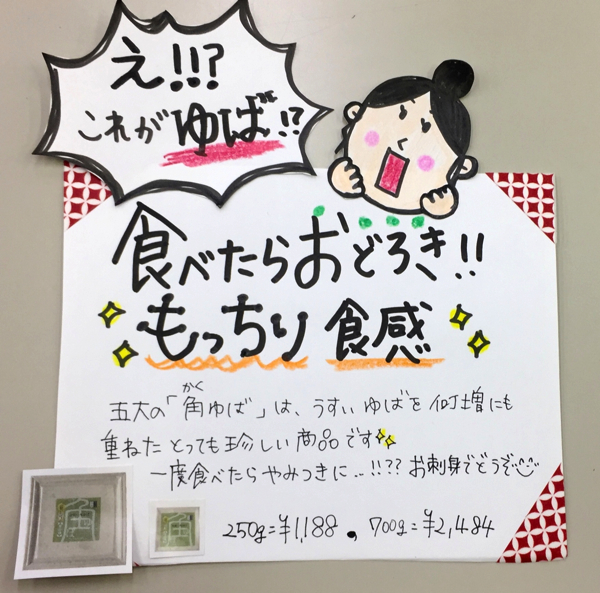 え!!?
これがゆば!?
食べたらおどろき!!
もっちり食感
かく
五大の「角ゆば」は、うすいゆばを何増にも
重ねたとっても珍しい商品です
一度食べたらやみつきに…!!?? お刺身でどうぞ
250g=¥1,188 , 700g=¥2,484
角
角